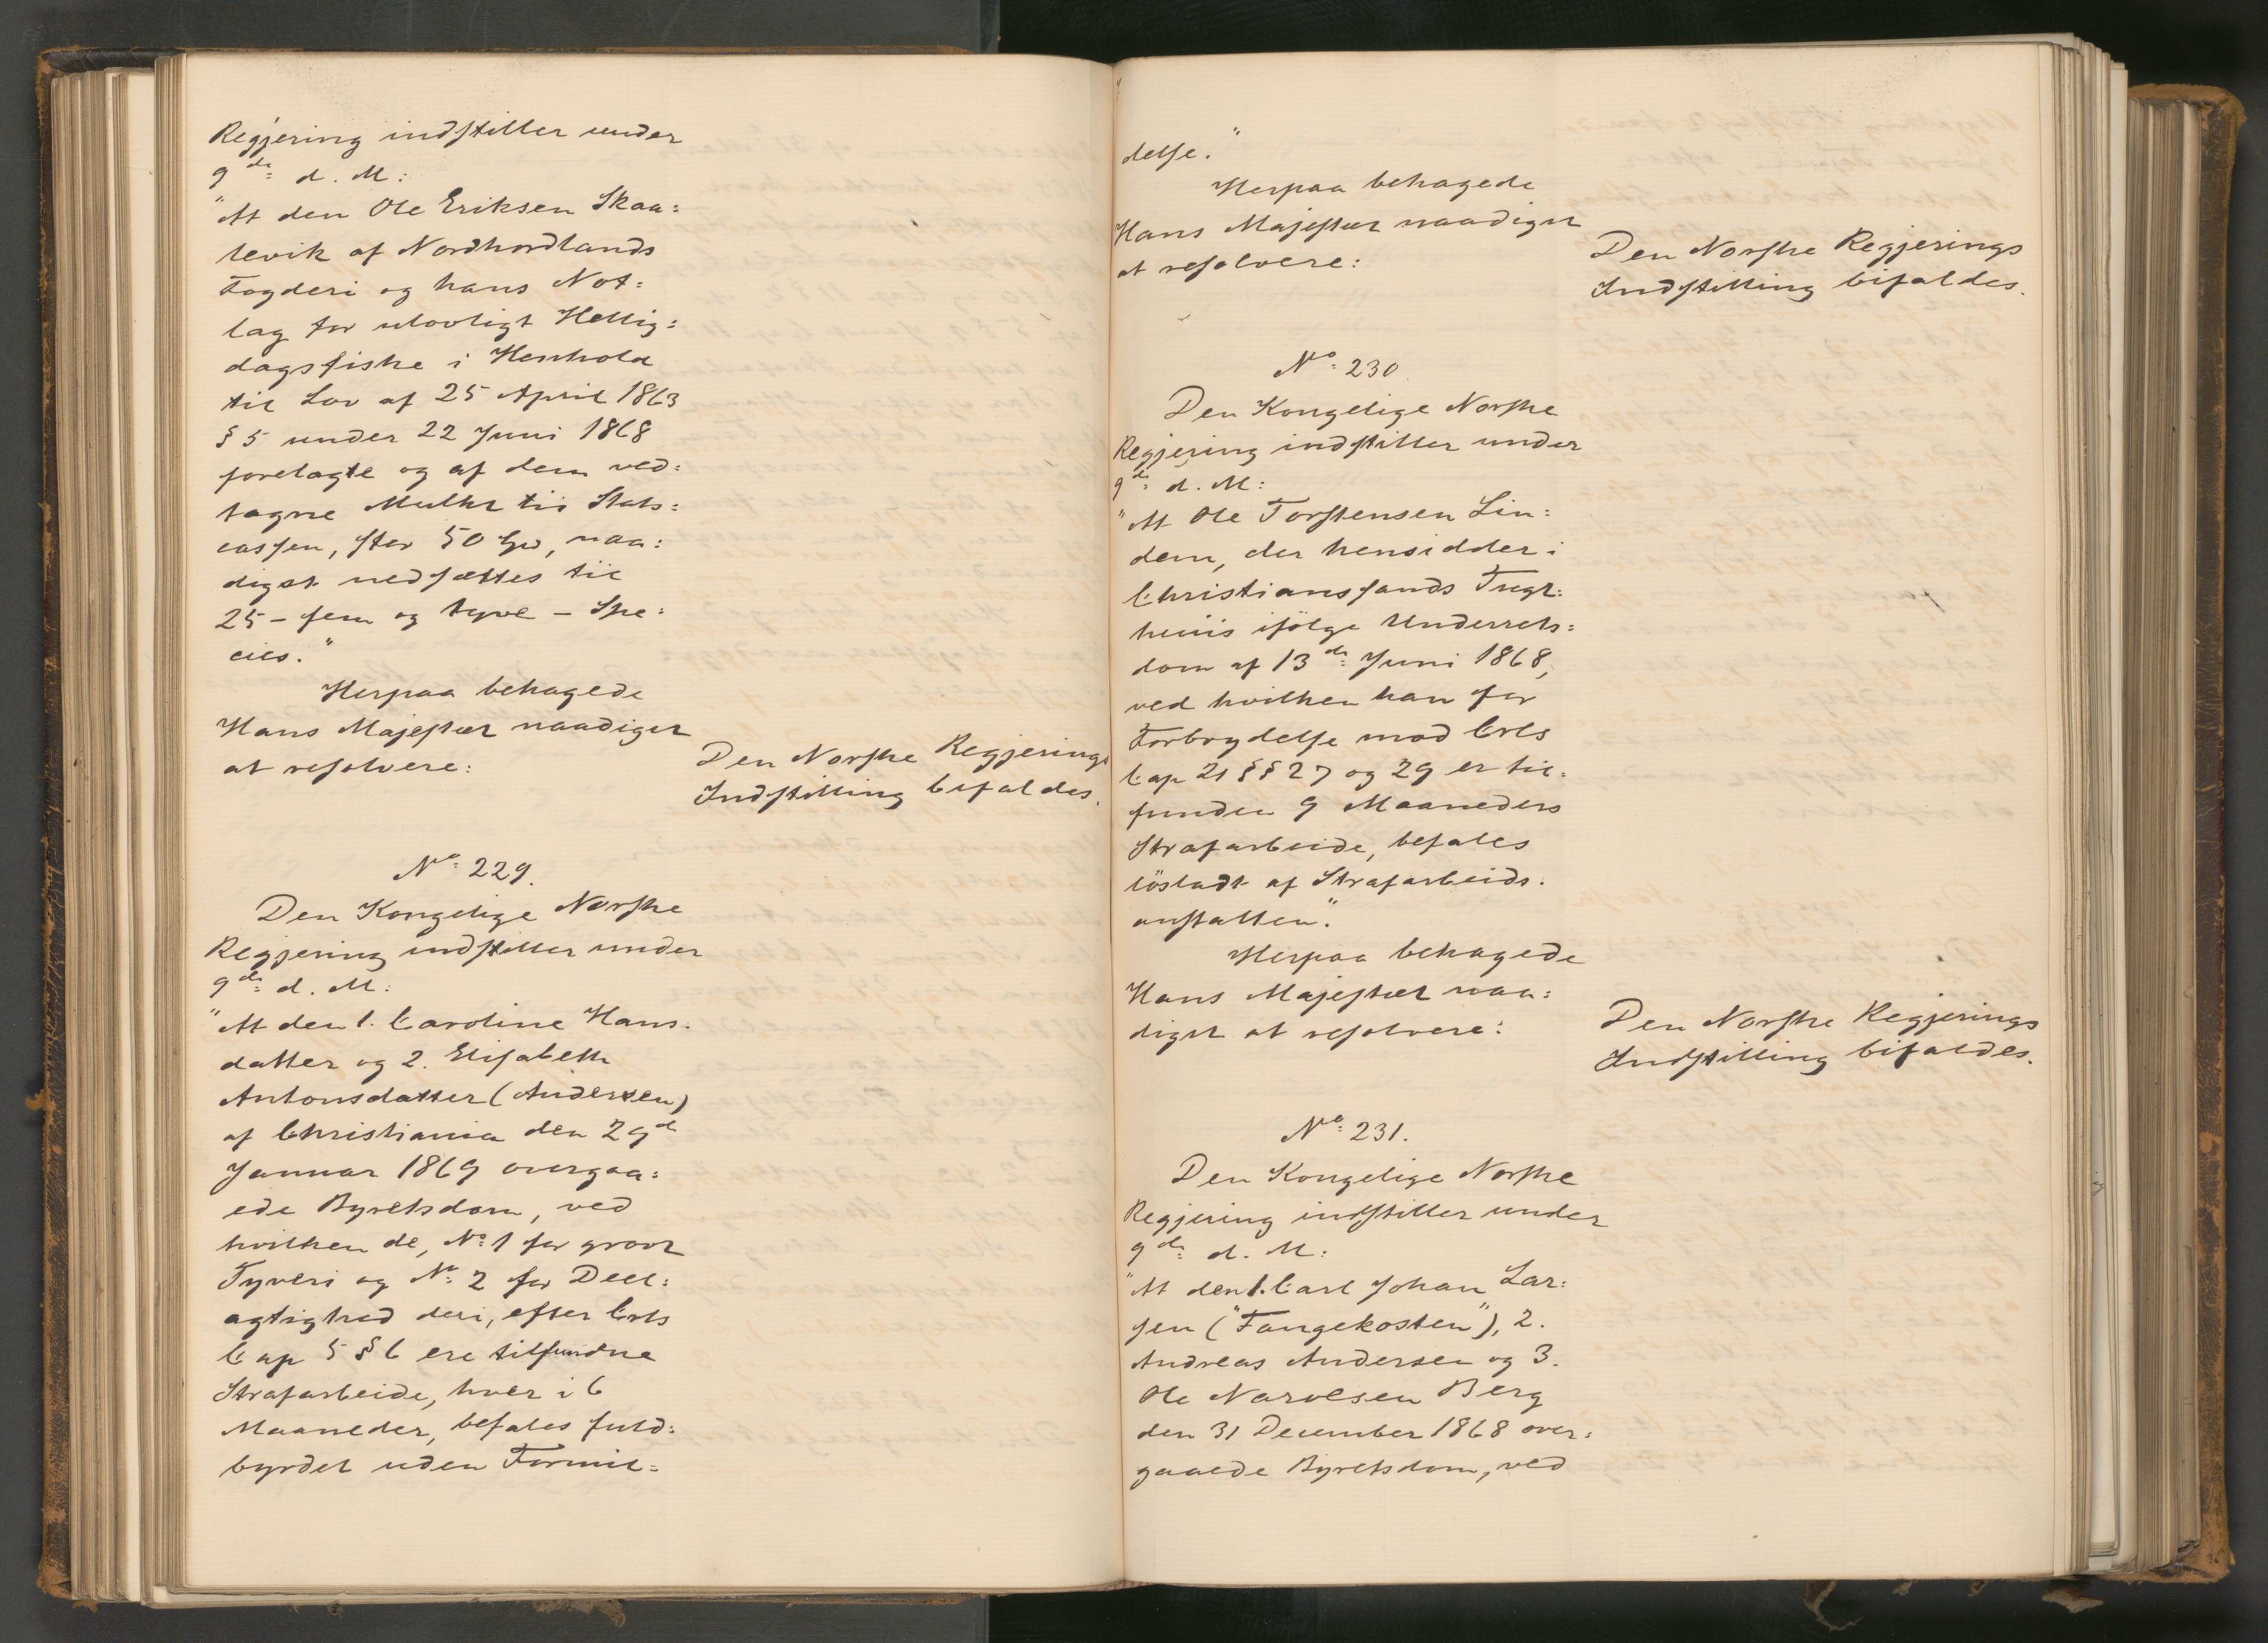 Regjering indstiller under
9de d. M:
"At den Ole Eriksen Skaa=
levik af Nordhordlands
Fogderi og hans Not=
lag for ulovligt Hellig=
dagsfiske i Henhold
til Lov af 25 April 1863
§ 5 under 22 Juni 1868
forelagte og af dem ved=
tagne Mulkt til Stats=
cassen, stor 50 Spd, naa=
digst nedsættes til
25 - fem og tyve - Spe=
cies."
Herpaa behagede
Hans Majestæt naadigst
at resolvere:
Den Norske Regjerings
Indstilling bifaldes.
No= 229.
Den Kongelige Norske
Regjering indstiller under
9de= d. M:
"At den 1. Caroline Hans=
datter og 2. Elisabeth
Antonsdatter (Andersen)
af Christiania den 29de
Januar 1869 overgaa=
ede Byretsdom, ved
hvilken de, No= 1 for grovt
Tyveri og No= 2 for Deel=
agtighed deri, efter Crls
Cap 5 § 6 ere tilfundne
Strafarbeide, hver i 6
Maaneder, befales fuld=
byrdet uden Formil=
delse."
Herpaa behagede
Hans Majestæt naadigst
at resolvere:
Den Norske Regjerings
Indstilling bifaldes.
No= 230
Den Kongelige Norske
Regjering indstiller under
9de= d. M:
"At Ole Torstensen Lin=
dem, der hensidder i
Christianssands Tugt=
huus ifölge Underrets=
dom af 13de= Juni 1868,
ved hvilken han for
Forbrydelse mod Crls
Cap 21 §§ 27 og 29 er til=
funden 9 Maaneders
Strafarbeide, befales
lösladt af Strafarbeids=
anstalten."
Herpaa behagede
Hans Majestæt naa=
digst at resolvere:
Den Norske Regjerings
Indstilling bifaldes.
No= 231.
Den Kongelige Norske
Regjering indstiller under
9de= d. M:
"At den 1. Carl Johan Lar=
sen ("Fangekosten"), 2.
Andreas Andersen og 3.
Ole Narvesen Berg
den 31 December 1868 over=
gaaede Byretsdom, ved